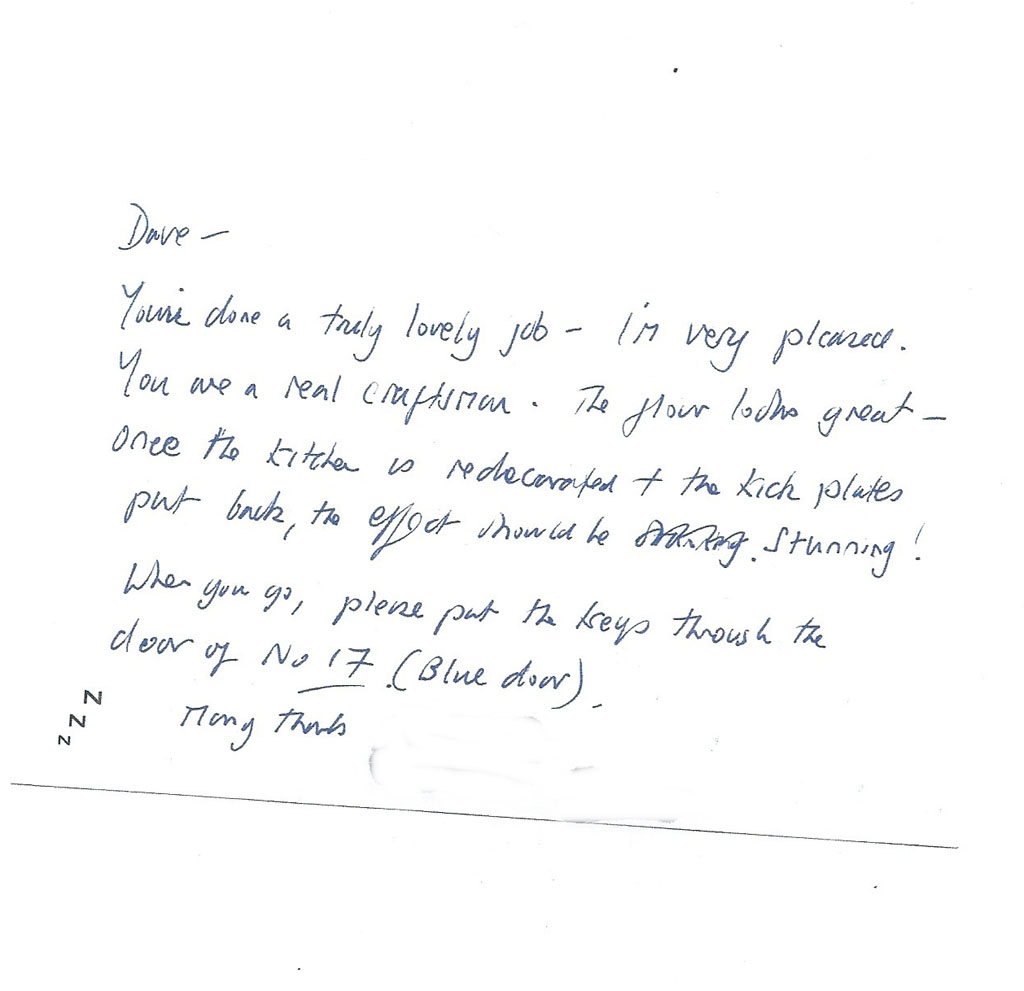 Dave –
You've done a truly lovely job – I'm very pleased.
You are a real craftsman. The floor looks great –
once the kitchen is redecorated + the kick plates
put back, the effect should be stunning!
When you go, please put the keys through the
door of No 17. (Blue door).
Many thanks
z z z